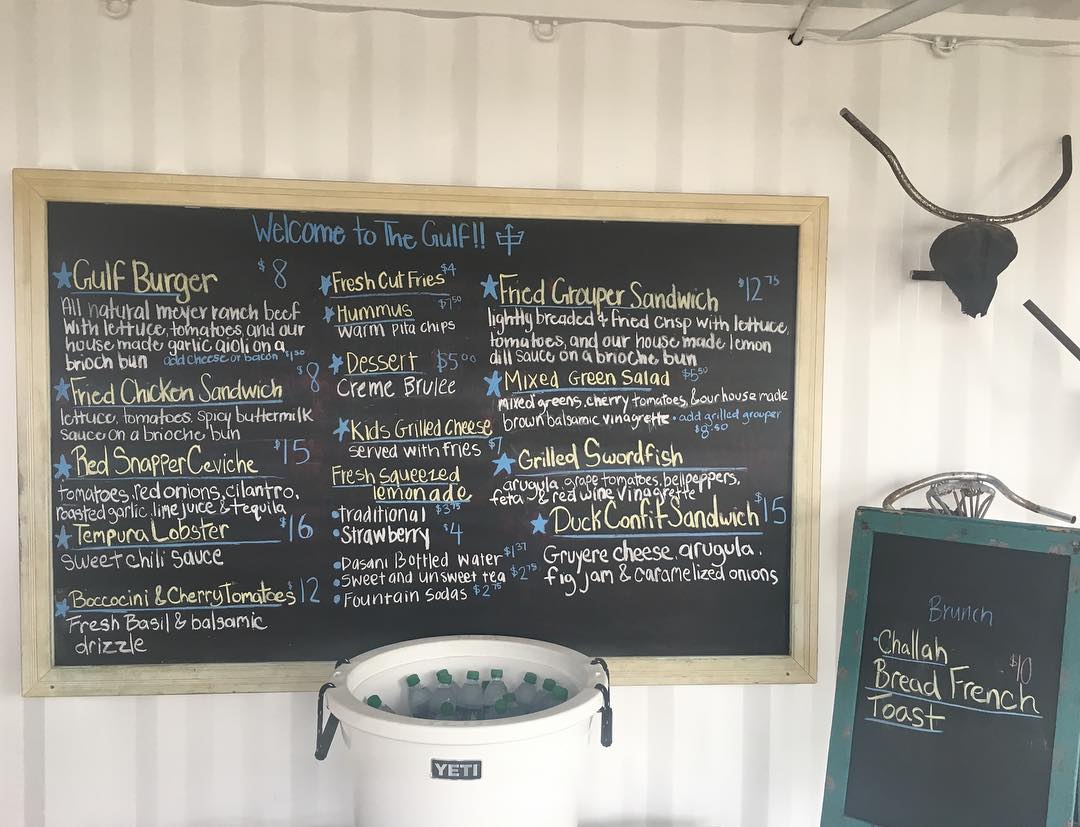 Welcome to The Gulf!!
Gulf Burger $8
All natural meyer ranch beef
with lettuce, tomatoes, and our
house made garlic aioli on a
brioch bun add cheese or bacon $1.50
Fried Chicken Sandwich $8
lettuce, tomatoes, spicy buttermilk
sauce on a brioche bun
Red Snapper Ceviche $15
tomatoes, red onions, cilantro,
roasted garlic, lime juice & tequila
Tempura Lobster $16
sweet chili sauce
Boccocini & Cherry Tomatoes $12
Fresh Basil & balsamic
drizzle
Fresh Cut Fries $4
Hummus $7.50
warm pita chips
Dessert $5.00
Creme Brulee
Kids Grilled Cheese
served with fries $7
Fresh squeezed
lemonade
traditional $3.75
Strawberry $4
Dasani Bottled Water $1.37
Sweet and unsweet tea $2.75
Fountain Sodas $2.75
Fried Grouper Sandwich $12.75
lightly breaded & fried crisp with lettuce,
tomatoes, and our house made lemon
dill sauce on a brioche bun
Mixed Green Salad $5.50
mixed greens, cherry tomatoes, & our house made
brown balsamic vinagrette • add grilled grouper
$8.50
Grilled Swordfish
arugula, grape tomatoes, bell peppers,
feta, & red wine vinagrette
Duck Confit Sandwich $15
Gruyere cheese, arugula,
fig jam & caramelized onions
YETI
Brunch
Challah
Bread French $10
Toast